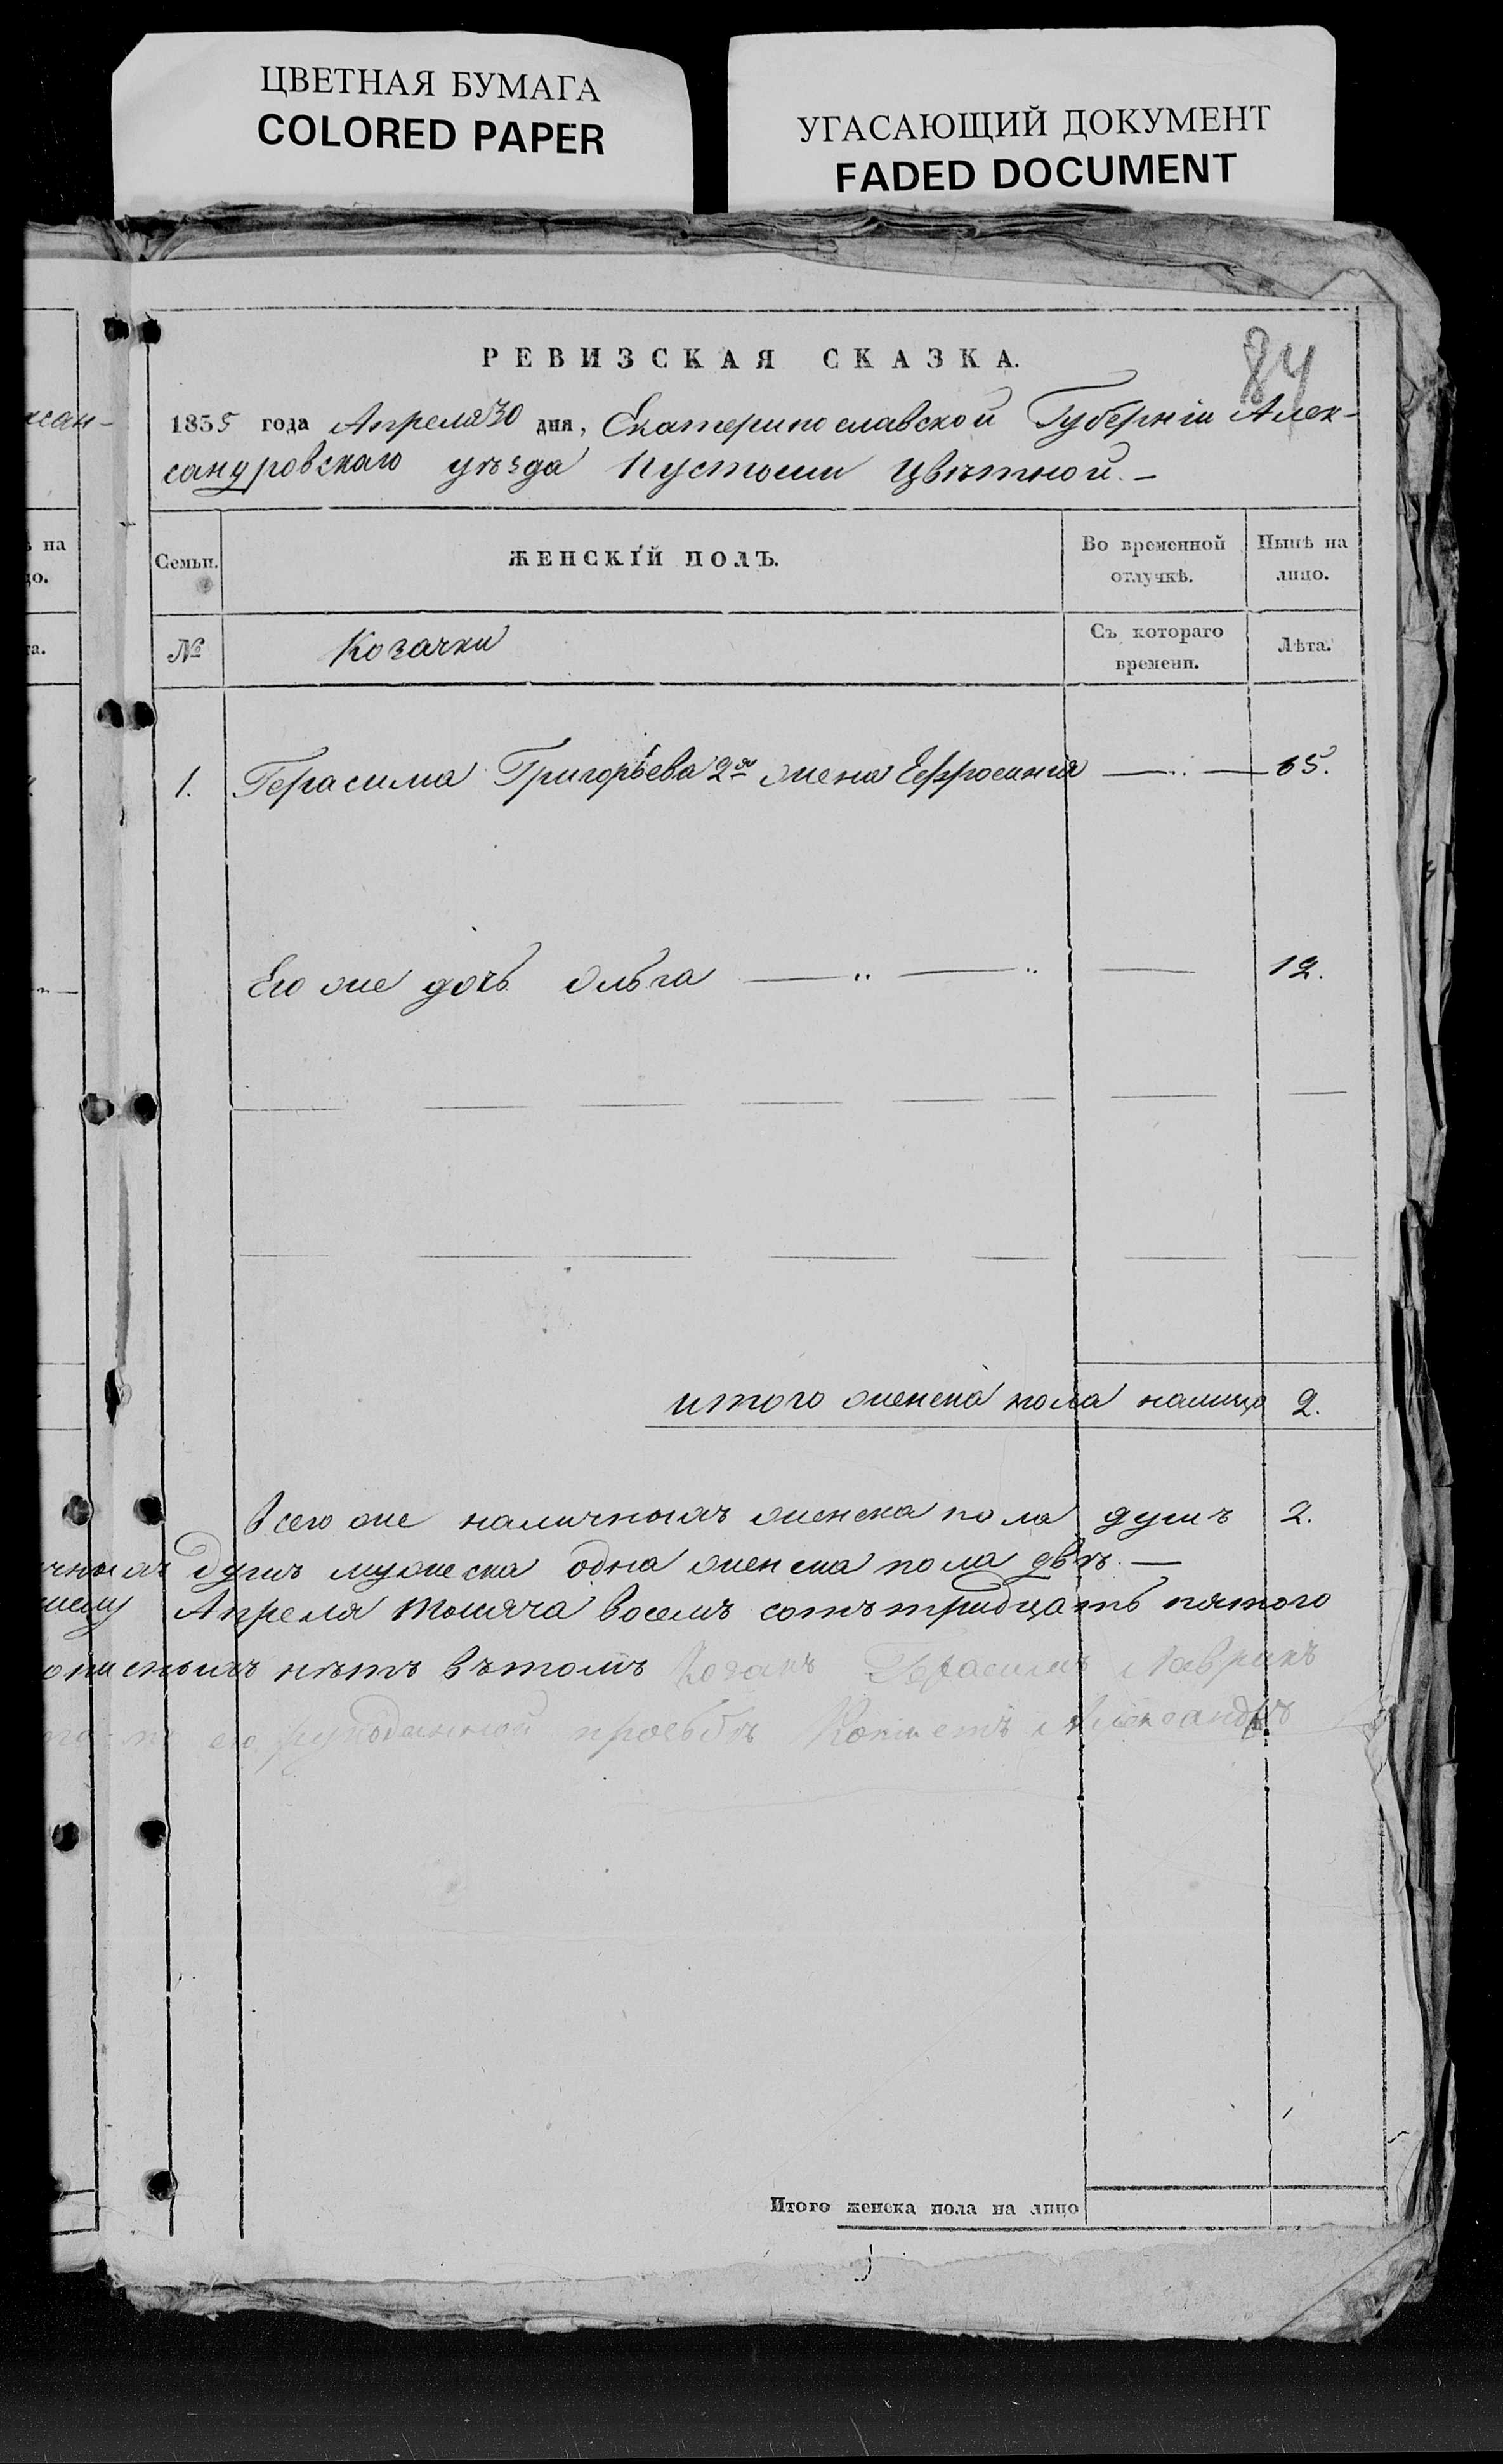 ЦВЕТНАЯ БУМАГА
COLORED PAPER
УГАСАЮЩИЙ ДОКУМЕНТ
FADED DOCUMENT
84
РЕВИЗСКАЯ СКАЗКА.
1835 года Апреля 30 дня, Екатеринославской Губерніи Алек-
сандровскаго уѣзда Пустоши Цвѣтной. —
ксан-
на
Семьи.
ЖЕНСКІЙ ПОЛЪ.
Во временной
отлучкѣ.
Нынѣ на
лицо.
№
Козачки
Съ котораго
времени.
Лѣта.
1. Герасима Григорьева 2я жена Ефросинія 65.
Его же дочь Ольга 12.
итого женска пола налицо 2.
Всего же наличныхъ женска пола душъ 2.
душъ мужеска одна женска пола двѣ. —
Апреля тысяча восемъ сотъ тридцать пятого
нѣтъ вътомъ Козакъ Герасимъ Лаврикъ
его рукоданной прозьбѣ Александръ
Итого женска пола на лицо